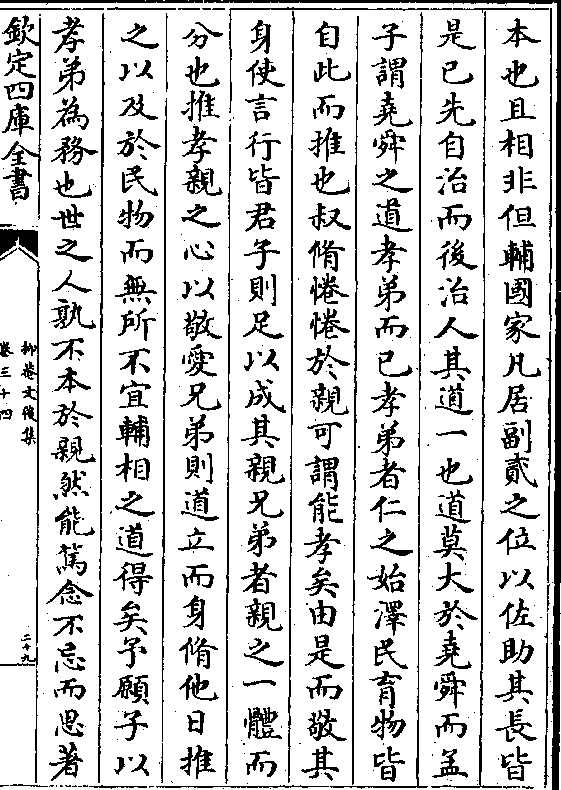 本也且相非但輔國家凡居副貳之位以佐助其長皆
是已先自治而後治人其道一也道莫大於堯舜而孟
子謂堯舜之道孝弟而已孝弟者仁之始澤民育物皆
自此而推也叔脩惓惓於親可謂能孝矣由是而敬其
身使言行皆君子則足以成其親兄弟者親之一體而
分也推孝親之心以敬愛兄弟則道立而身脩他日推
之以及於民物而無所不宜輔相之道得矣予願子以
孝弟為務也世之人孰不本於親然能篤念不忘而思著
欽定四庫全書
抑菴文後集
卷三十四
二十九